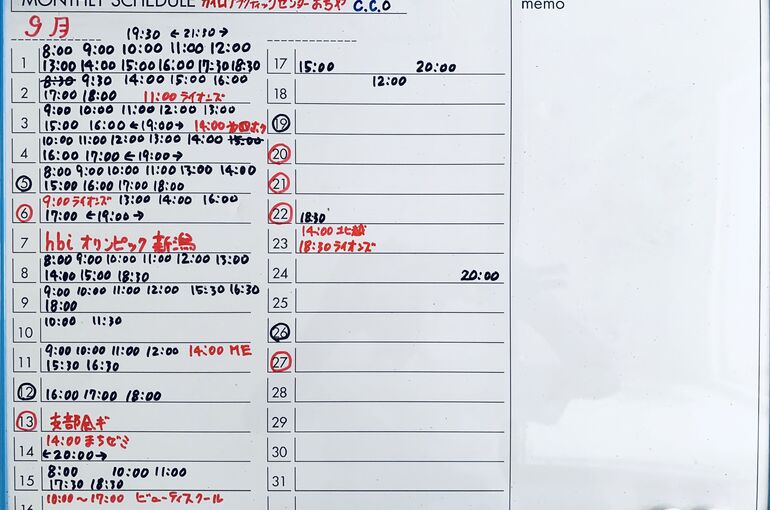 MONTHLY SCHEDULE カイロプラクティックセンターおぢや C.C.O
memo
9月
19:30 ←21:30→
1 8:00 9:00 10:00 11:00 12:00
13:00 14:00 15:00 16:00 17:30 18:30
2 8:30 9:30 14:00 15:00 16:00
17:00 18:00 11:00 ライオンズ
3 9:00 10:00 11:00 12:00 13:00
15:00 16:00 ←19:00→ 14:00
4 10:00 11:00 12:00 13:00 14:00 15:00
16:00 17:00 ←19:00→
5 8:00 9:00 10:00 11:00 13:00 14:00
15:00 16:00 17:00 18:00
6 9:00 ライオンズ 13:00 14:00 16:00
17:00 ←19:00→
7 hbi オリンピック 新潟
8 8:00 9:00 10:00 11:00 12:00 13:00
14:00 15:00 18:30
9 9:00 10:00 11:00 12:00 15:30 16:30
18:00
10 10:00 11:30
11 9:00 10:00 11:00 12:00 14:00 ME
15:30 16:30
12 16:00 17:00 18:00
13 支部会ギ
14 14:00 まちゼミ
←20:00→
15 8:00 10:00 11:00
17:30 18:30
16 10:00〜17:00 ビューティスクール
17 15:00 20:00
18 12:00
19
20
21
22 18:30
23 14:00 北越
18:30 ライオンズ
24 20:00
25
26
27
28
29
30
31